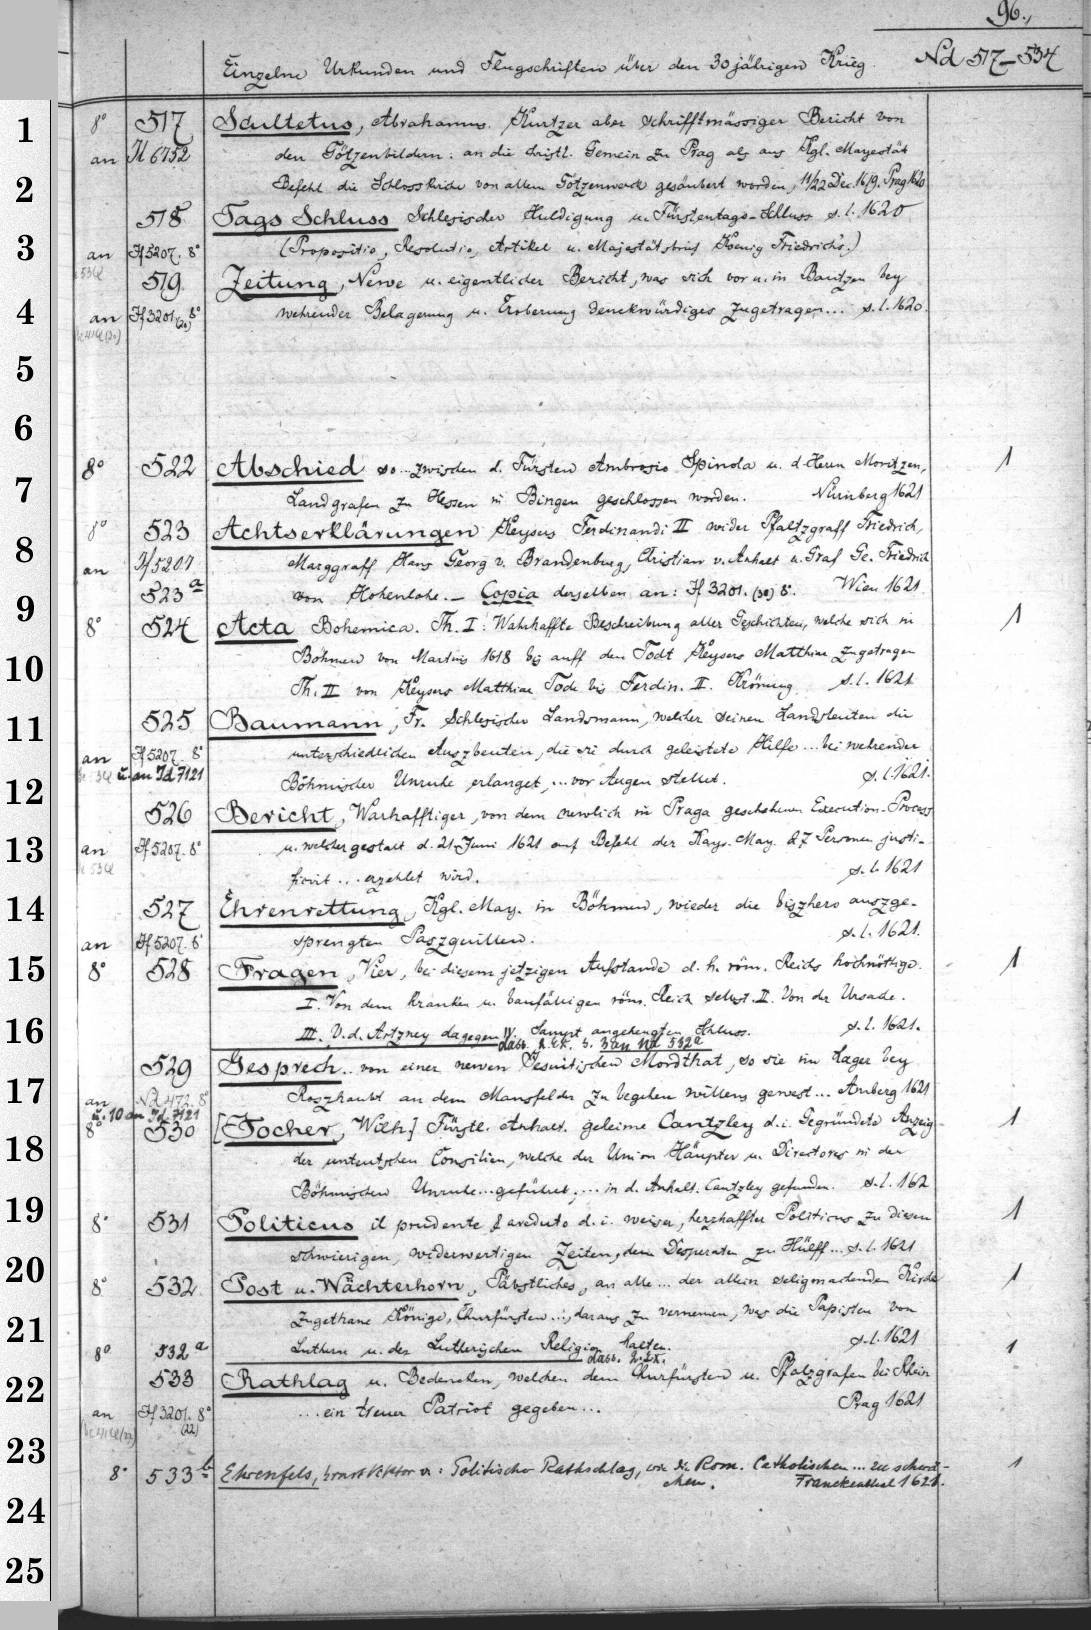 96.,
Einzelne Urkunden und Flugschriften über den 30jährigen Krieg. Nd 517–534
1
8° 517 Scultetus, Abrahamus. Kurtzer aber schrifftmässiger Bericht von
an Il 6752 den Götzenbildern: an die christl. Gemein zu Prag als aus Kgl. Mayestät
2
Befehl die Schlosskirche von allem Götzenwerck gesäubert worden, 11/22 Dec. 1619. Prag 1620
518 Tags Schluss Schlesischer Huldigung u. Fürstentags-Schluss s.l. 1620
3
an If 5207. 8° (Propositio, Resolutio, Artikel u. Majestätsbrief Koenig Friedrichs.)
519. Zeitung, Newe u. eigentlicher Bericht, was sich vor u. in Bautzen bey
4
an If 3201.(20) 8° wehrender Belagerung u. Eroberung denckwürdiges zugetragen... s.l. 1620.
5
6
8° 522 Abschied so... zwischen d. Fürsten Ambrosio Spinola u. d. Herrn Moritzen, 1
7
Landgrafen zu Hessen in Bingen geschlossen worden. Nürnberg 1621
8° 523 Achtserklärungen Keysers Ferdinandi II wider Pfaltzgraff Friedrich,
8
an If 5207 Marggraff Hans Georg v. Brandenburg, Christian v. Anhalt u. Graf Ge. Friedrich
523a von Hohenlohe. – Copia derselben an: If 3201. (30) 8°. Wien 1621
9
8° 524 Acta Bohemica. Th. I: Wahrhaffte Beschreibung aller Geschichten, welche sich in 1
Böhmen von Martius 1618 bis auff den Todt Keysers Matthiae zugetragen
10
Th. II von Keysers Matthiae Tode bis Ferdin. II. Krönung s.l. 1621
11
525 Baumann, Fr. Schlesischer Landsmann, welcher seinen Landsleuten die
an If 5207. 8° unterschiedlichen Auszbeuten, die sie durch geleistete Hilfe... bei wehrender
u. an Id 7121
12
Böhmischer Unruhe erlanget, ... vor Augen stellet. s.l. 1621.
526 Bericht, Warhafftiger, von dem newlich in Praga geschehenen Execution-Process
13
an If 5207. 8° u. welcher gestalt d. 21. Juni 1621 auf Befehl der Kays. May. 27 Personen justi-
ficirt ... erzehlet wird. s.l. 1621
14
527 Ehrenrettung, Kgl. May. in Böhmen, wieder die biszhero auszge-
an If 5207. 8° sprengten Paszquillen. s.l. 1621.
15
8° 528 Fragen, Vier, bei diesem jetzigen Aufstande d. h. röm. Reichs hochnöttige. 1
I. Von dem kranken u. baufälligen röm. Reich selbst. II. Von der Ursache.
16
III. V. d. Artzney dagegen IV. Sampt angehengten Schluss. s.l. 1621.
dass. 2. Ex. s. 3 an Nd 532a
529 Gesprech.. von einer newen Jesuitischen Mordthat, so sie im Lager bey
17
an Nd 472. 8° Roszhaubt an dem Mansfelder zu begehen willens gewest... Amberg 1621
u. 10 an Id 7121
8° 530 [Jocher, Wilh.] Fürstl. Anhalt. geheime Cantzley d.i. Gegründete Anzeig 1
18
der unteutschen Consilien, welche der Union Häupter u. Directores in der
Böhmischen Unruhe... geführet, ... in d. Anhalt. Cantzley gefunden. s.l. 162
19
8° 531 Politicus il prudente & aveduto d.i. weiser, herzhaffter Politicus zu diesen 1
schwierigen, widerwertigen Zeiten, dem Desperaten zu Hülff... s.l. 1621
20
8° 532 Post u. Wächterhorn, Päbstliches, an alle ... der allein seligmachenden Kirche 1
21
zugethane Könige, Churfürsten..., daraus zu vernemen, was die Papisten von
8° 532a Luthern u. der Lutherischen Religion halten. s.l. 1621 1
dass. 2. Ex.
22
533 Rathlag u. Bedencken, welchen dem Churfürsten u. Pfalzgrafen bei Rhein
an If 3201. 8° (22) ... ein treuer Patriot gegeben... Prag 1621
23
8° 533b Ehrenfels, Ernst Viktor v.: Politischer Rathschlag, wie die Röm. Catholischen ... zu schwä- 1
chen. Franckenthal 1621.
24
25